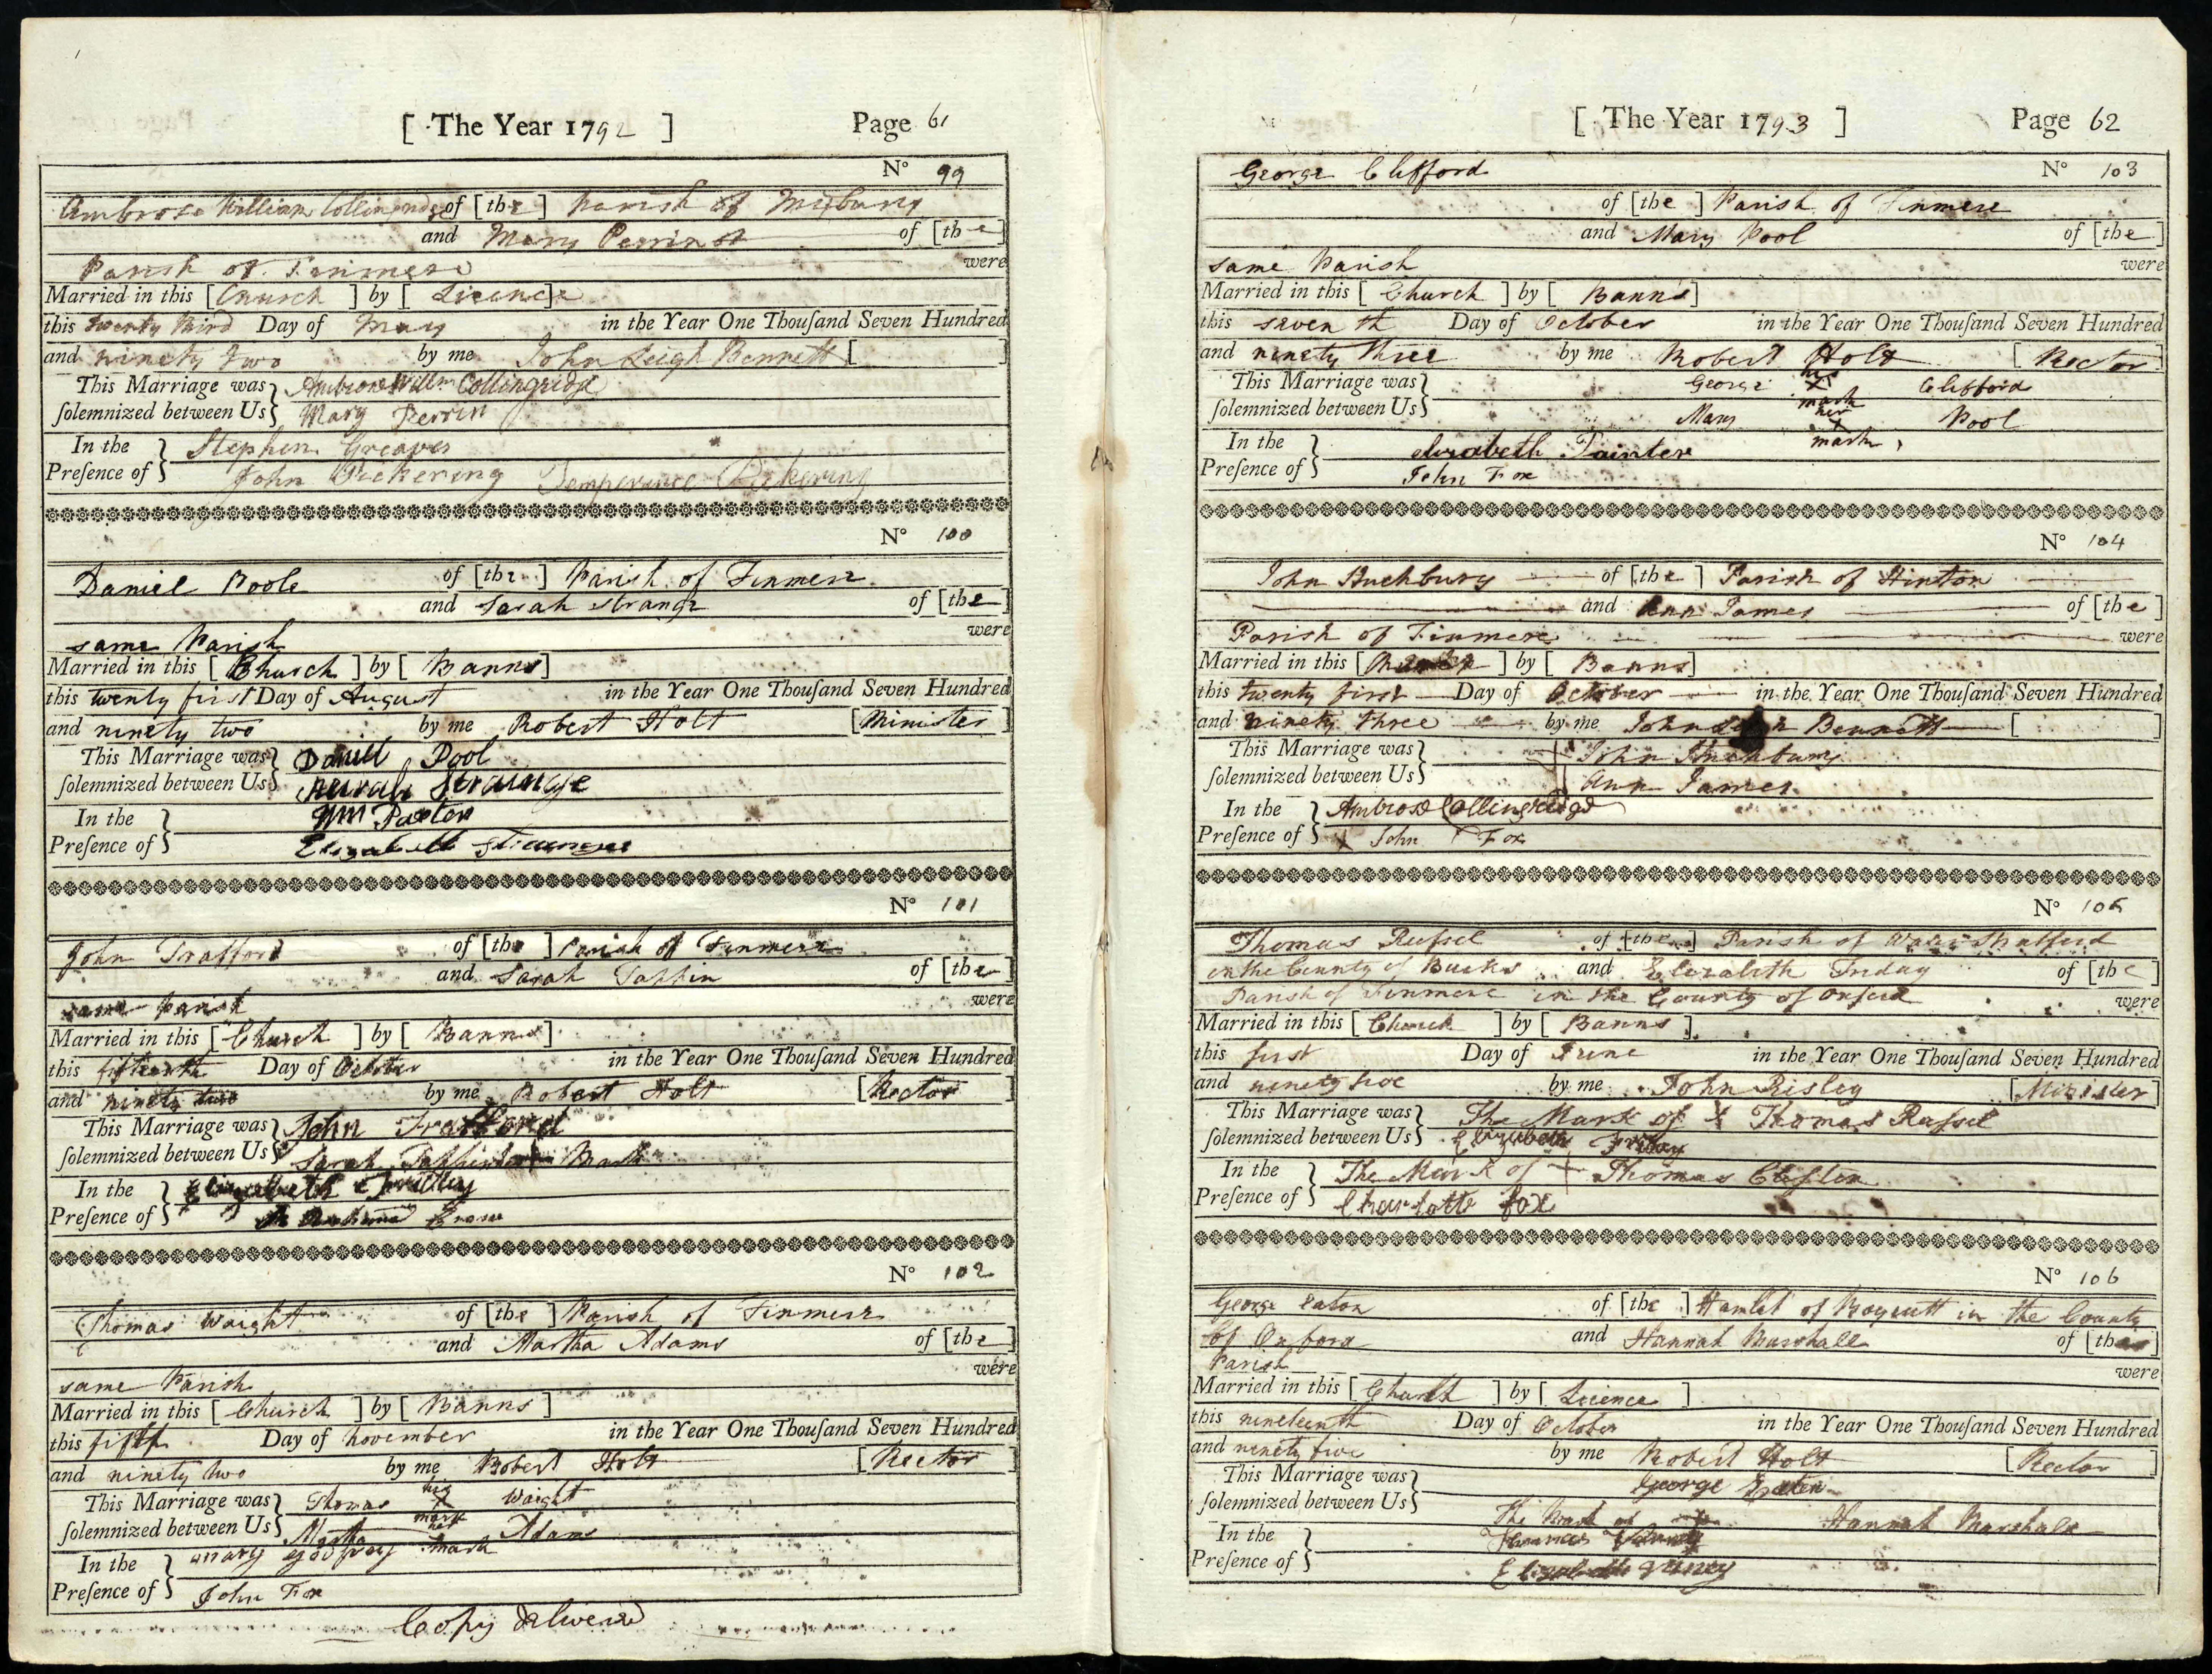 [ The Year 1792 ] Page 61
No 99
Ambrose William Collinridge of [the] Parish of Mixbury
and Mary Perrin of [the]
Parish of Finmere were
Married in this [Church] by [Licence]
this twenty third Day of May in the Year One Thouſand Seven Hundred
and ninety two by me John Leigh Bennett [ ]
This Marriage was Ambrose Willm Collingridge
ſolemnized between Us Mary Perrin
In the Stephen Greaves
Preſence of John Pickering Temperance Pickering
No 100
Daniel Poole of [the] Parish of Finmere
and Sarah Strange of [the]
same Parish were
Married in this [Church] by [Banns]
this twenty first Day of August in the Year One Thouſand Seven Hundred
and ninety two by me Robert Holt [Minister]
This Marriage was Daniel Pool
ſolemnized between Us Saurah Straunge
In the Wm Paxton
Preſence of Elizabeth
No 101
John Trafford of [the] Parish of Finmere
and Sarah Tappin of [the]
same Parish were
Married in this [Church] by [Banns]
this fifteenth Day of October in the Year One Thouſand Seven Hundred
and ninety two by me Robert Holt [Rector]
This Marriage was John Trafford
ſolemnized between Us Sarah Mark
In the Elizabeth
Preſence of
No 102
Thomas Waight of [the] Parish of Finmere
and Martha Adams of [the]
same Parish were
Married in this [Church] by [Banns]
this fifth Day of November in the Year One Thouſand Seven Hundred
and ninety two by me Robert Holt [Rector]
This Marriage was Thomas his X mark Waight
ſolemnized between Us Martha her mark Adams
In the Mary Godfrey
Preſence of John Fox
Copy delivered
[ The Year 1793 ] Page 62
George Clifford No 103
of [the] Parish of Finmere
and Mary Pool of [the]
same Parish were
Married in this [Church] by [Banns]
this seventh Day of October in the Year One Thouſand Seven Hundred
and ninety three by me Robert Holt [Rector]
This Marriage was George his X mark Clifford
ſolemnized between Us Mary her X mark Pool
In the Elizabeth Painter
Preſence of John Fox
No 104
John Huchbury of [the] Parish of Hinton
and Ann James of [the]
Parish of Finmere were
Married in this [Church] by [Banns]
this twenty first Day of October in the Year One Thouſand Seven Hundred
and ninety three by me John Leigh Bennett [ ]
This Marriage was + John Huchbury
ſolemnized between Us + Ann James
In the Ambrose Collingridge
Preſence of X John Fox
No 105
Thomas Ruſsel of [the] Parish of Water Stratford
in the County of Bucks and Elizabeth Friday of [the]
Parish of Finmere in the County of Oxford were
Married in this [Church] by [Banns]
this first Day of June in the Year One Thouſand Seven Hundred
and ninety five by me John Risley [Minister]
This Marriage was The Mark of X Thomas Ruſsel
ſolemnized between Us Elizabeth Friday
In the The Mark of + Thomas
Preſence of Charlotte Fox
No 106
George Eaton of [the] Hamlet of Boycutt in the County
of Oxford and Hannah Marshall of [this]
Parish were
Married in this [Church] by [Licence]
this nineteenth Day of October in the Year One Thouſand Seven Hundred
and ninety five by me Robert Holt [Rector]
This Marriage was George Eaton
ſolemnized between Us The Mark of X Hannah Marshall
In the
Preſence of Elizabeth